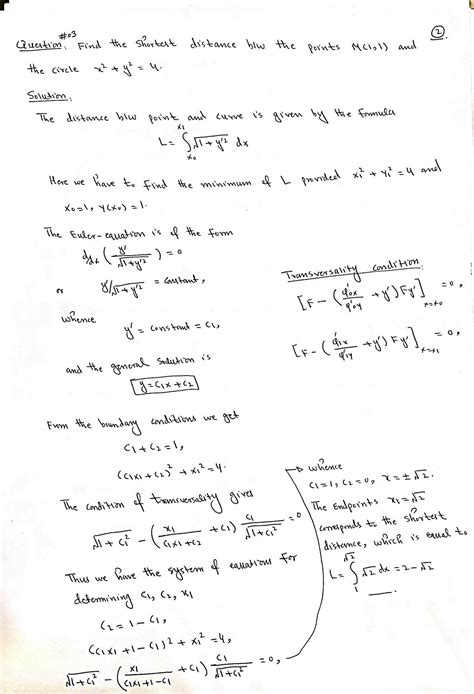 ②
#03
Question: Find the shortest distance b/w the points M(1,1) and
the circle x² + y² = 4.
Solution:
The distance b/w point and curve is given by the formula
L = ∫_{x₀}^{x₁} √(1+y'²) dx
Here we have to find the minimum of L provided x₁² + y₁² = 4 and
x₀=1, y(x₀) = 1.
The Euler-equation is of the form
d/dx (y'/√(1+y'²)) = 0
or y'/√(1+y'²) = constant,
whence
y' = constant = c₁,
and the general solution is
y = c₁x + c₂
Transversality condition:
[F - (φ'₀ₓ/φ'₀y + y') Fy']_{x=x₀} = 0,
[F - (φ'₁ₓ/φ'₁y + y') Fy']_{x=x₁} = 0,
From the boundary conditions we get
c₁ + c₂ = 1,
(c₁x₁ + c₂)² + x₁² = 4.
The condition of transversality gives
√(1+c₁²) - (x₁/(c₁x₁+c₂) + c₁) c₁/√(1+c₁²) = 0
Thus we have the system of equations for
determining c₁, c₂, x₁
c₂ = 1 - c₁,
(c₁x₁ + 1 - c₁)² + x₁² = 4,
√(1+c₁²) - (x₁/(c₁x₁+1-c₁) + c₁) c₁/√(1+c₁²) = 0,
whence
c₁ = 1, c₂ = 0, x = ±√2.
The Endpoints x₁ = √2
corresponds to the shortest
distance, which is equal to
L = ∫₁^{√2} √2 dx = 2 - √2